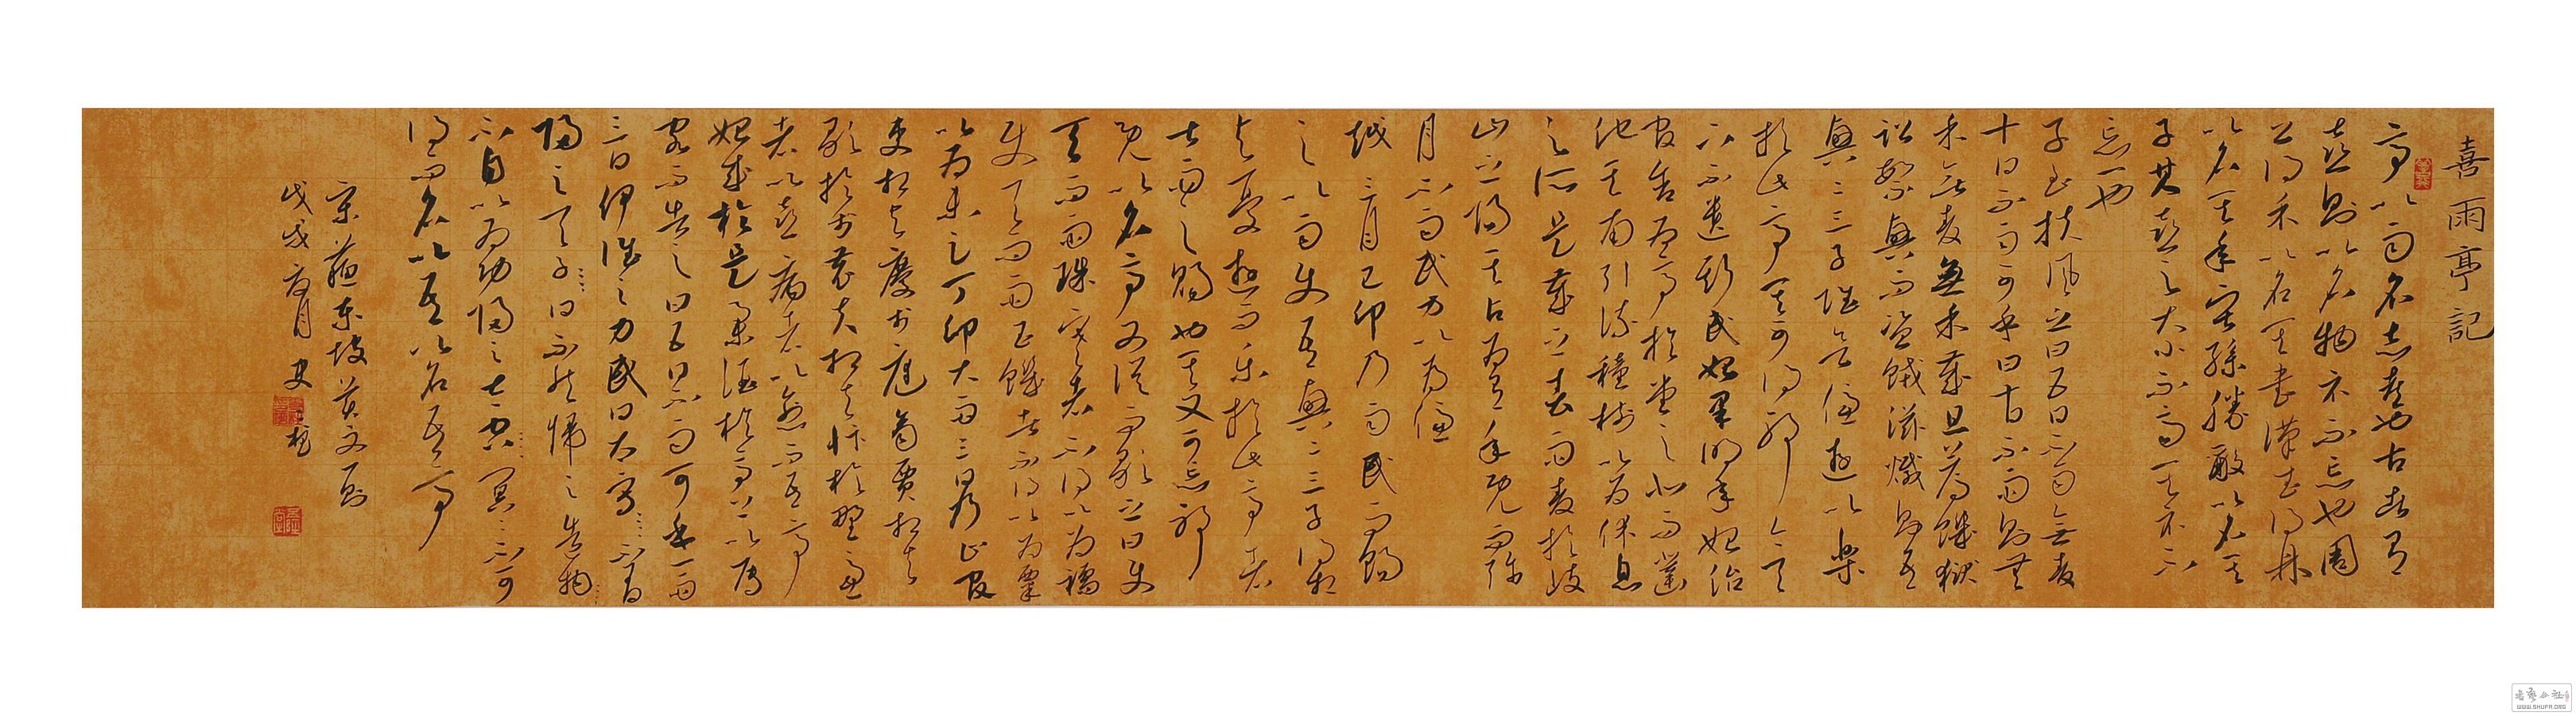 喜雨亭記
亭以雨名志喜也古者有
喜則以名物示不忘也周
公得禾以名其書漢武得鼎
以名其年叔孫勝敵以名其
子其喜之大小不齊其示不
忘一也
予至扶風之曰五日不雨無麥
十日不雨可乎曰十日不雨則無
禾無麥無禾歲且荐饑獄
訟繁興而盜賊滋熾則吾
與二三子雖欲優遊以樂
於此亭其可得耶今天
不遺斯民始旱明年始治
官舍為亭於堂之北而鑿
池其南引流種樹以為休息
之所是歲之春雨麥於岐
山之陽其占為有年既而彌
月不雨民方以為憂
越三月乙卯乃雨民而賜
之以雨使吾與二三子得相
與憂遊而樂於此亭者
皆雨之賜也其又可忘耶
既以名亭又從而歌之曰使
天而雨珠寒者不得以為襦
使天而雨玉饑者不得以為粟
以為未足丁卯大雨三日乃止官
吏相與慶於庭商賈相與
歌於市農夫相與忭於野憂
者以喜病者以愈而吾亭
始成於是舉酒於亭上以屬
客而告之曰五日不雨可乎一雨
三日伊誰之力民曰太守〻〻不有
歸之天子〻〻曰不然歸之造物〻〻
不自以為功歸之太空〻〻冥〻不可
得而名以吾以名吾亭
宋蘇東坡文一則
戊戌夏月史
WWW.SHUFA.ORG